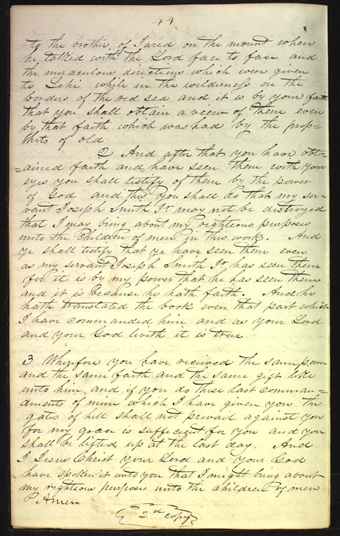 44
to the brother of Jared on the mount when
he talked with the Lord face to face and
the miraculous directions which were given
to Lehi while in the wilderness on the
borders of the red sea and it is by your faith
that you shall obtain a view of them even
by that faith which was had by the prop-
hets of old
2 And after that you have obt-
ained faith and have seen them with your
eyes you shall testify of them by the power
of God and this you shall do that my ser-
vant Joseph Smith Jr may not be destroyed
that I may bring about my righteous purposes
unto the children of men in this work. And
ye shall testify that ye have seen them even
as my servant Joseph Smith Jr has seen them
for it is by my power that he has seen them
and it is because he hath faith. And he
hath translated the book even that part which
I have commanded him and as your Lord
and your God liveth it is true.
3 Wherefore you have recieved the same power
and the same faith and the same gift like
unto him, and if you do these last comman-
dments of mine which I have given you the
gates of hell shall not prevail against you
for my grace is sufficient for you and you
shall be lifted up at the last day. And
I Jesus Christ your Lord and your God
have spoken it unto you that I might bring about
my righteous purposes unto the children of men
Amen
2d copy